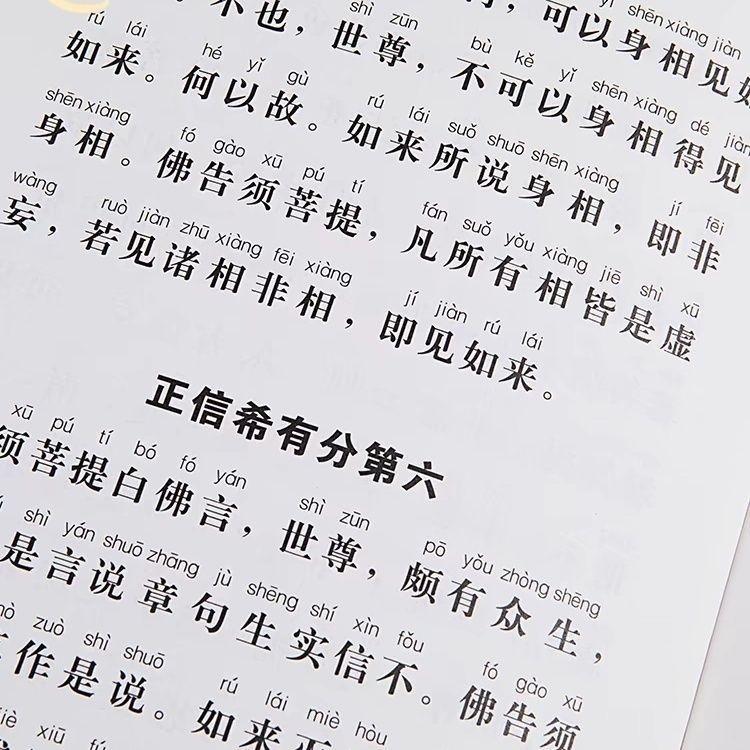 shēn xiàng jiàn
可以身相见如
shì zūn bù kě yǐ shēn xiàng dé jiàn
不也，世尊，不可以身相得见
rú lái hé yǐ gù rú lái suǒ shuō shēn xiàng jí fēi
如来。何以故。如来所说身相，即非
shēn xiàng fó gào xū pú tí fán suǒ yǒu xiàng jiē shì xū
身相。佛告须菩提，凡所有相皆是虚
wàng ruò jiàn zhū xiàng fēi xiàng jí jiàn rú lái
妄，若见诸相非相，即见如来。
正信希有分第六
xū pú tí bó fó yán shì zūn pō yǒu zhòng shēng
须菩提白佛言，世尊，颇有众生，
shì yán shuō zhāng jù shēng shí xìn fǒu fó gào xū
是言说章句生实信不。佛告须
zuò shì shuō rú lái miè hòu
作是说。如来灭
xiū fú